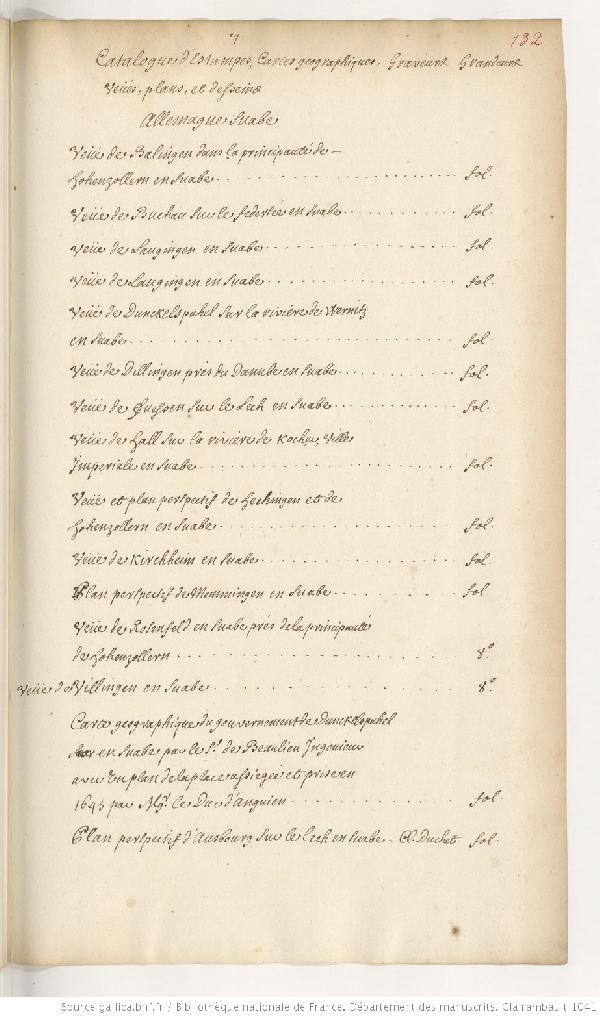 7
132
Catalogue d'Estampes, Cartes geographiques, Graveurs Grandeurs
Veües, plans, et desseins
Allemagne Suabe
Veüe de Balingen dans la principauté de
hohenzollern en Suabe fol.
Veüe de Buchau sur le federsée en Suabe fol.
Veüe de Laugingen en Suabe fol
Veüe de Laugingen en Suabe fol.
Veüe de Dunckelspuhel sur la riviere de Wernitz
en Suabe fol.
Veüe de Dillingen près du Danube en Suabe fol.
Veüe de fuessen sur le Lech en Suabe fol.
Veüe de hall sur la riviere de Kocher, Ville
Imperiale en Suabe fol.
Veüe et plan perspectif de hechingen et de
hohenzollern en Suabe fol.
Veüe de Kirchheim en Suabe fol.
Plan perspectif de Memmingen en Suabe fol
Veüe de Rosenfeld en Suabe près de la principauté
de hohenzollern 8.°
Veüe de Villingen en Suabe 8.°
Carte geographique du gouvernement de Dunckelspuhel
en Suabe par le S.r de Beaulieu Ingenieur
avec un plan de la place assiegée et prise en
1645 par Mgr. le Duc d'anguien fol.
Plan perspectif d'Ausbourg sur le lech en Suabe. Cl. Duchet fol.
Source gallica.bnf.fr / Bibliothèque nationale de France. Département des manuscrits. Clairambault 1041